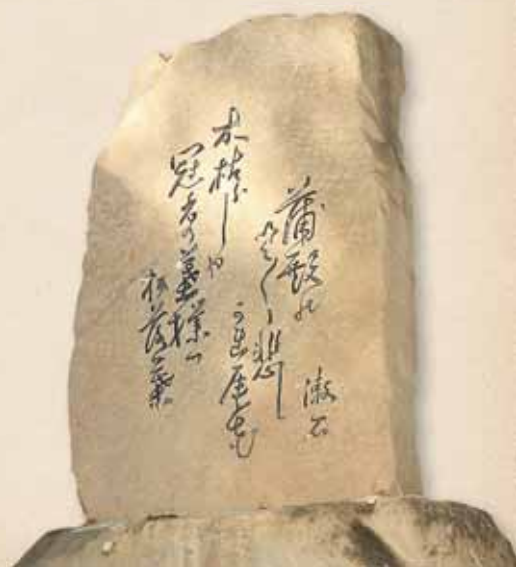 蒲殿の
いよ〳〵悲し
かれ尾花
漱石
木枯しや
冠者の墓撲つ
松落葉